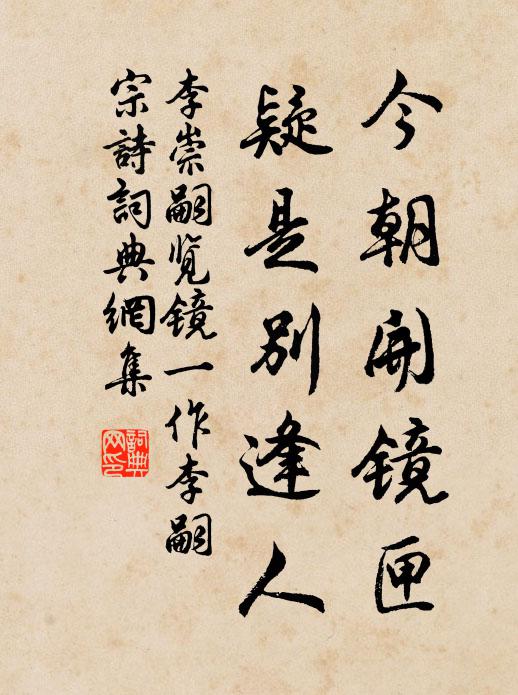 今朝开镜匣
疑是别逢人
李崇嗣览镜一作李嗣
宗詩詞典網集
詞典网印